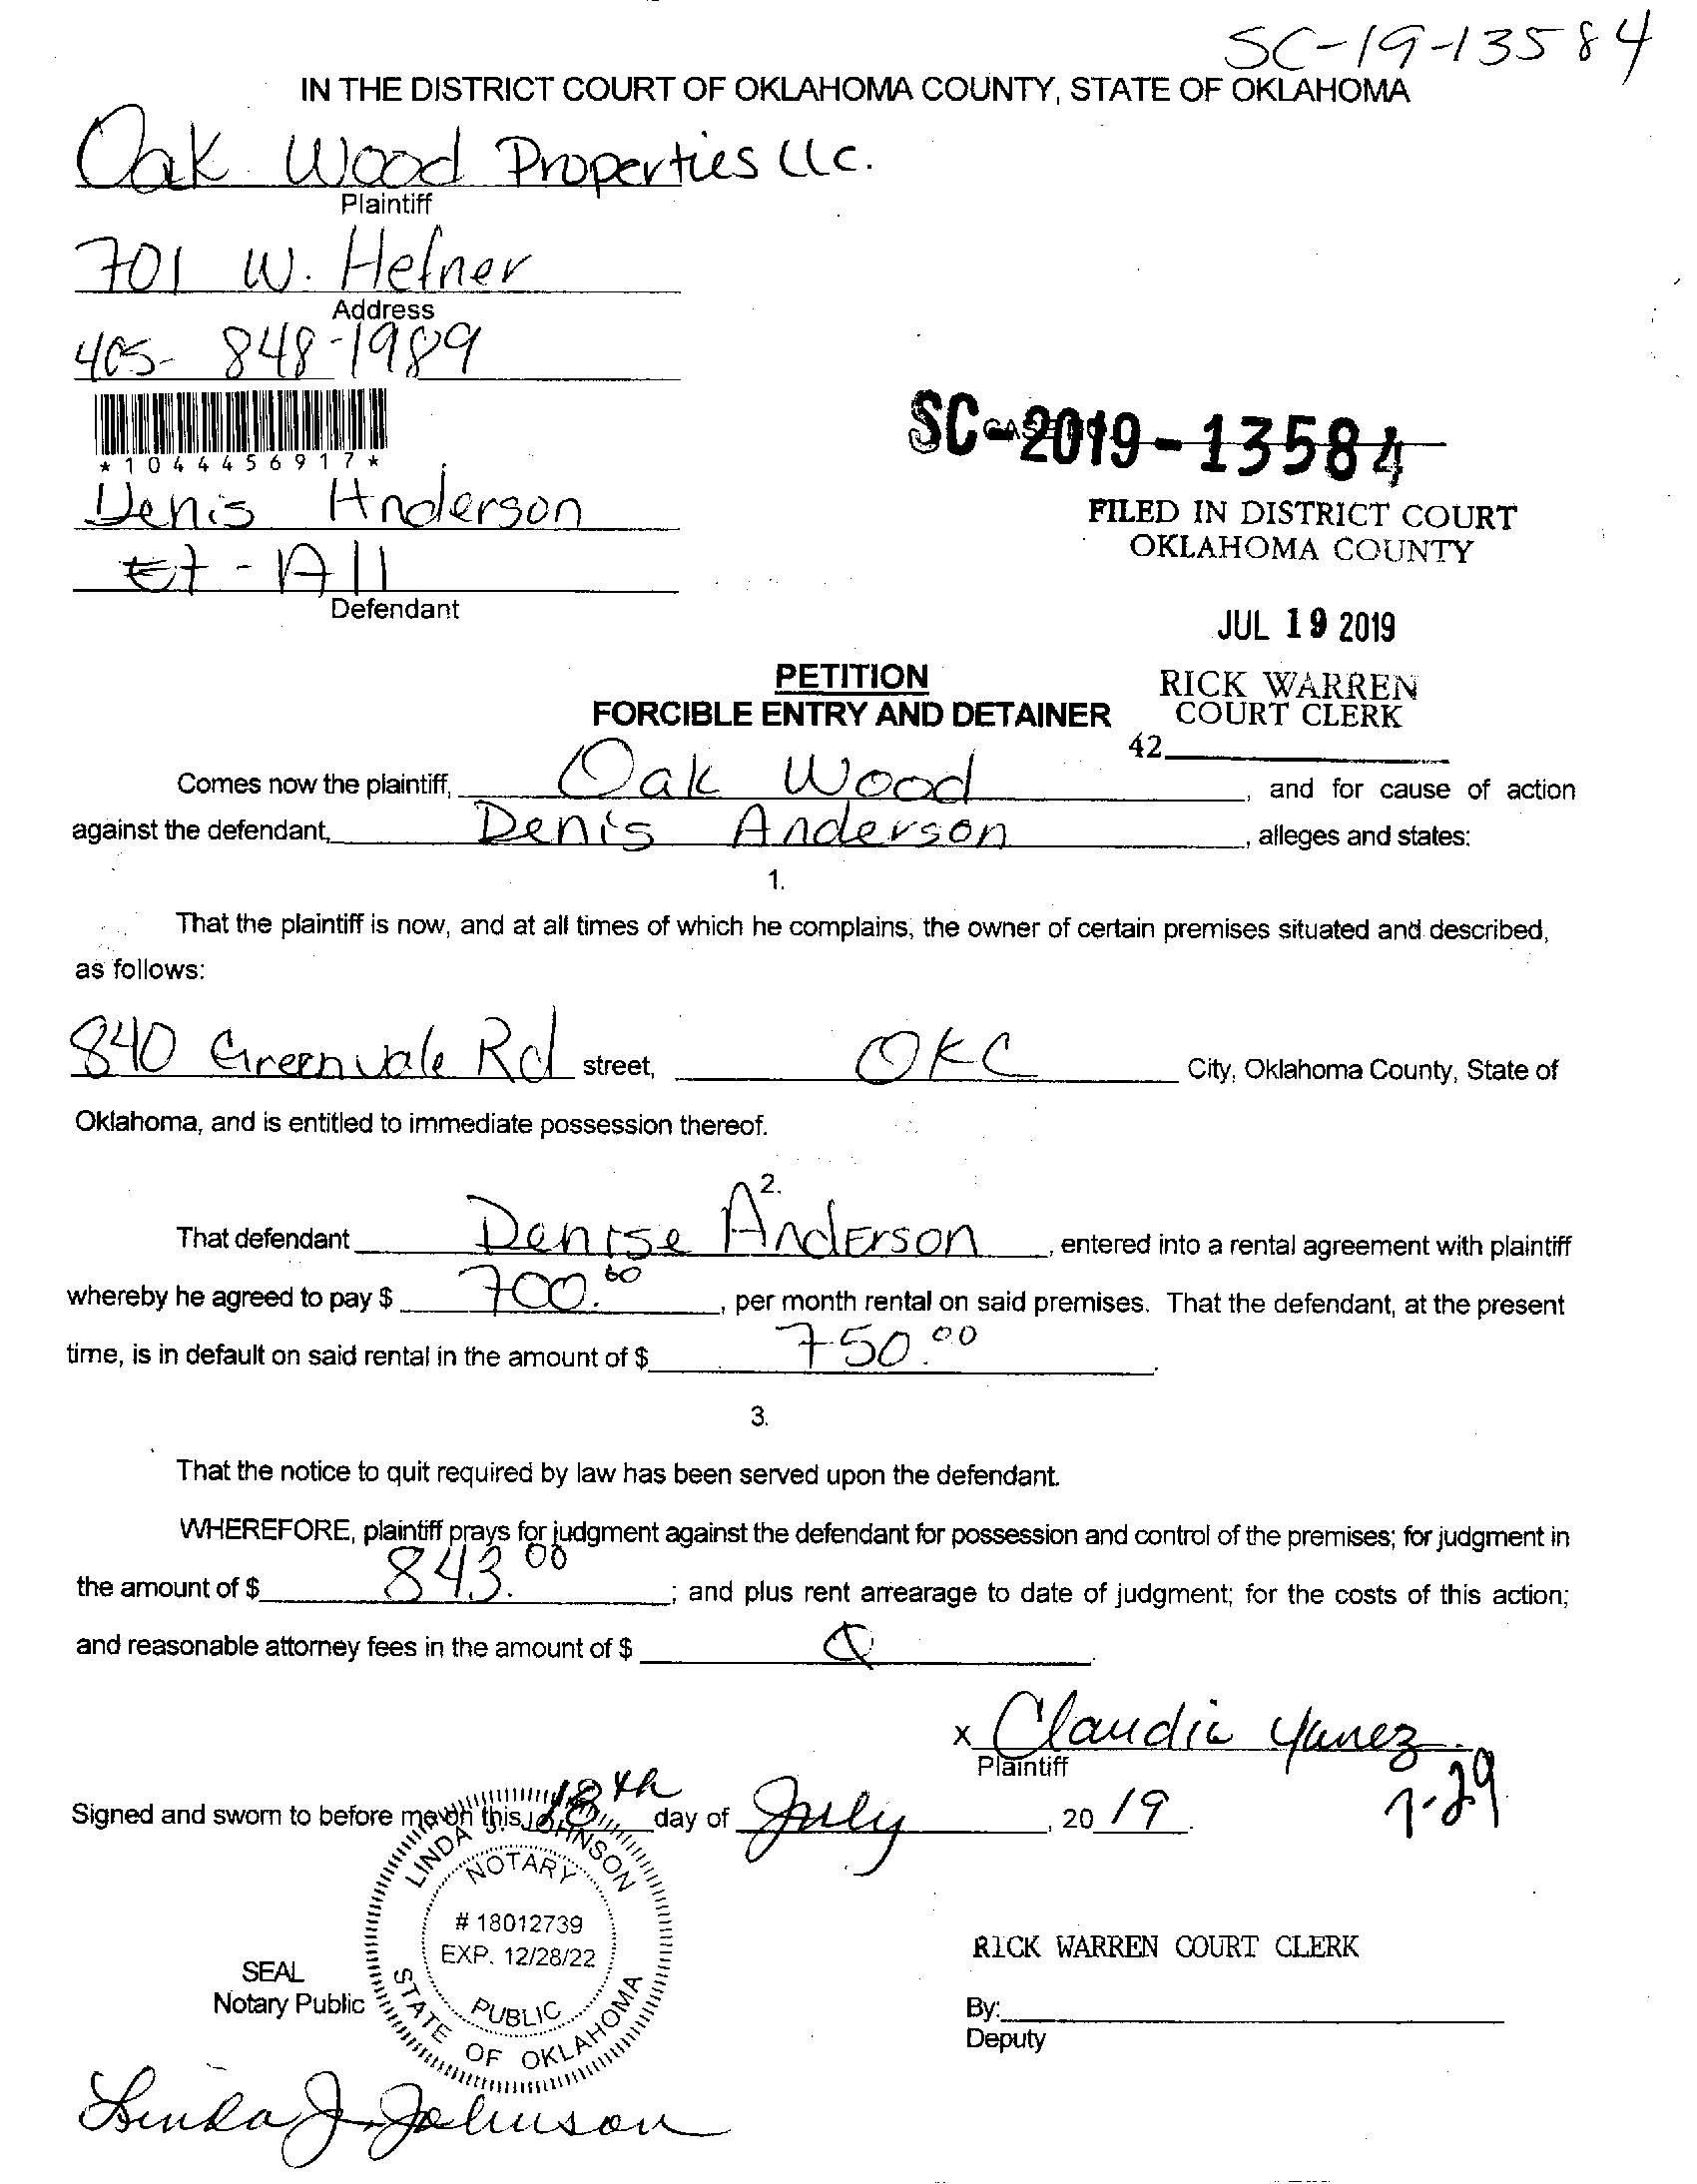 SC-19-13584
IN THE DISTRICT COURT OF OKLAHOMA COUNTY, STATE OF OKLAHOMA
Oak Wood Properties LLC.
Plaintiff
701 W. Hefner
Address
405- 848-1989
*1044456917*
SC-2019-13584
Denis Anderson
FILED IN DISTRICT COURT
OKLAHOMA COUNTY
Et - All
Defendant
JUL 19 2019
PETITION
RICK WARREN
FORCIBLE ENTRY AND DETAINER
COURT CLERK
42
Comes now the plaintiff, Oak Wood, and for cause of action
against the defendant, Denis Anderson, alleges and states:
1.
That the plaintiff is now, and at all times of which he complains, the owner of certain premises situated and described,
as follows:
840 Greenvale Rd street, OKC City, Oklahoma County, State of
Oklahoma, and is entitled to immediate possession thereof.
2.
That defendant Denise Anderson, entered into a rental agreement with plaintiff
whereby he agreed to pay $ 700.00, per month rental on said premises. That the defendant, at the present
time, is in default on said rental in the amount of $ 750.00.
3.
That the notice to quit required by law has been served upon the defendant.
WHEREFORE, plaintiff prays for judgment against the defendant for possession and control of the premises; for judgment in
the amount of $ 843.00; and plus rent arrearage to date of judgment; for the costs of this action;
and reasonable attorney fees in the amount of $
x Claudia Yanez
Plaintiff
7-29
Signed and sworn to before me on this 18th day of July, 20 19.
LINDA J. JOHNSON
NOTARY
# 18012739
EXP. 12/28/22
PUBLIC
STATE OF OKLAHOMA
RICK WARREN COURT CLERK
SEAL
Notary Public
By:
Deputy
Linda J. Johnson